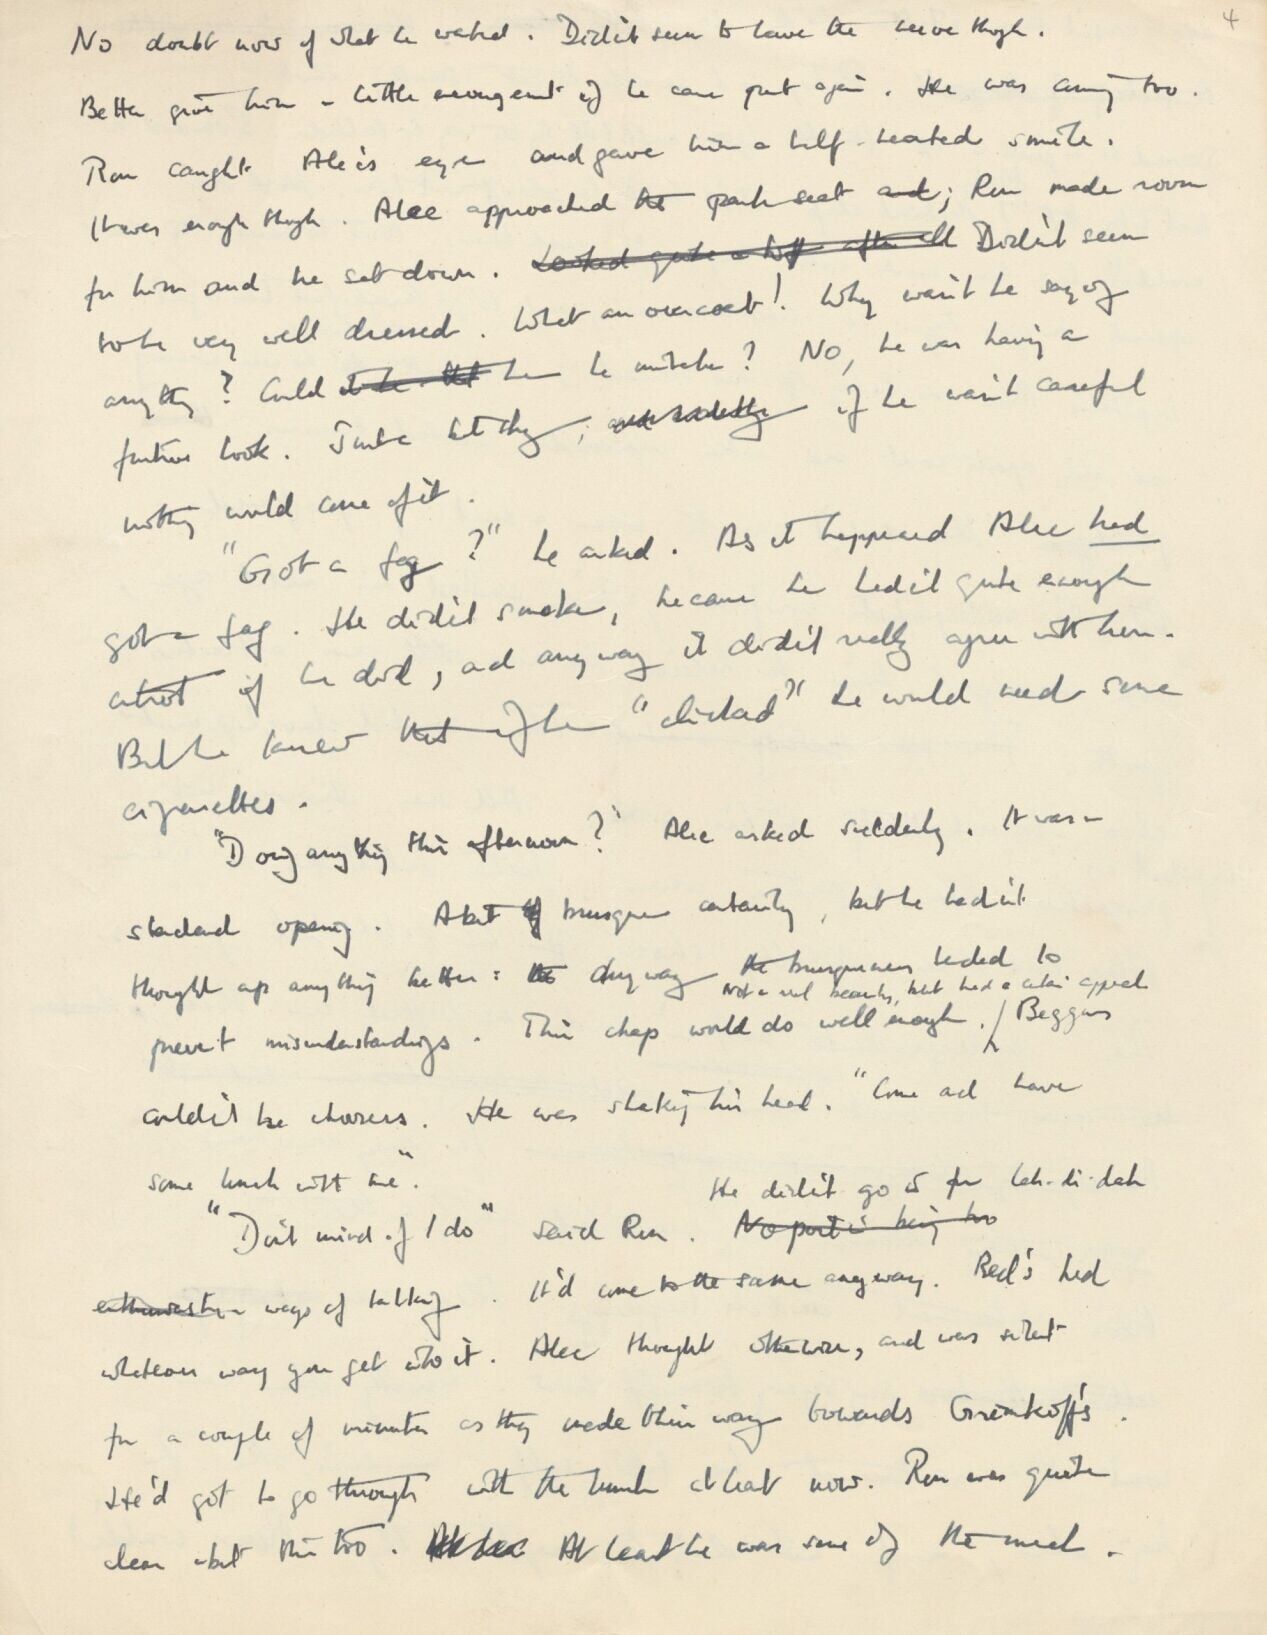 4
No doubt now of what he wanted. Didn't seem to have the nerve though.
Better give him a little encouragement if he came past again. He was coming too.
Ron caught Alec's eye and gave him a half-hearted smile.
It was enough though. Alec approached the park seat and; Ron made room
for him and he sat down. Looked quite a toff after all Didn't seem
to be very well dressed. What an overcoat! Why wasn't he saying
anything? Could it be that he be mistaken? No, he was having a
furtive look. Just a bit shy; if he wasn't careful
nothing would come of it.
"Got a fag?" he asked. As it happened Alec had
got a fag. He didn't smoke, because he hadn't quite enough
control if he did, and anyway it didn't really agree with him.
But he knew that if he "clicked" he would need some
cigarettes.
"Doing anything this afternoon?" Alec asked suddenly. It was a
standard opening. A bit of brusque certainly, but he hadn't
thought up anything better: the anyway the brusqueness tended to
Not a real beauty, but had a certain appeal
prevent misunderstandings. This chap would do well enough. / Beggars
couldn't be choosers. He was shaking his head. "Come and have
some lunch with me".
He didn't go in for lah-di-dah
"Don't mind if I do" said Ron. No point in being too
enthusiastic ways of talking. It'd come to the same anyway. Bed's bed
whatever way you get into it. Alec thought otherwise, and was silent
for a couple of minutes as they made their way towards Grenkoff's.
He'd got to go through with the lunch at least now. Ron was quite
clear about this too. At lea At least he was sure of the meal.